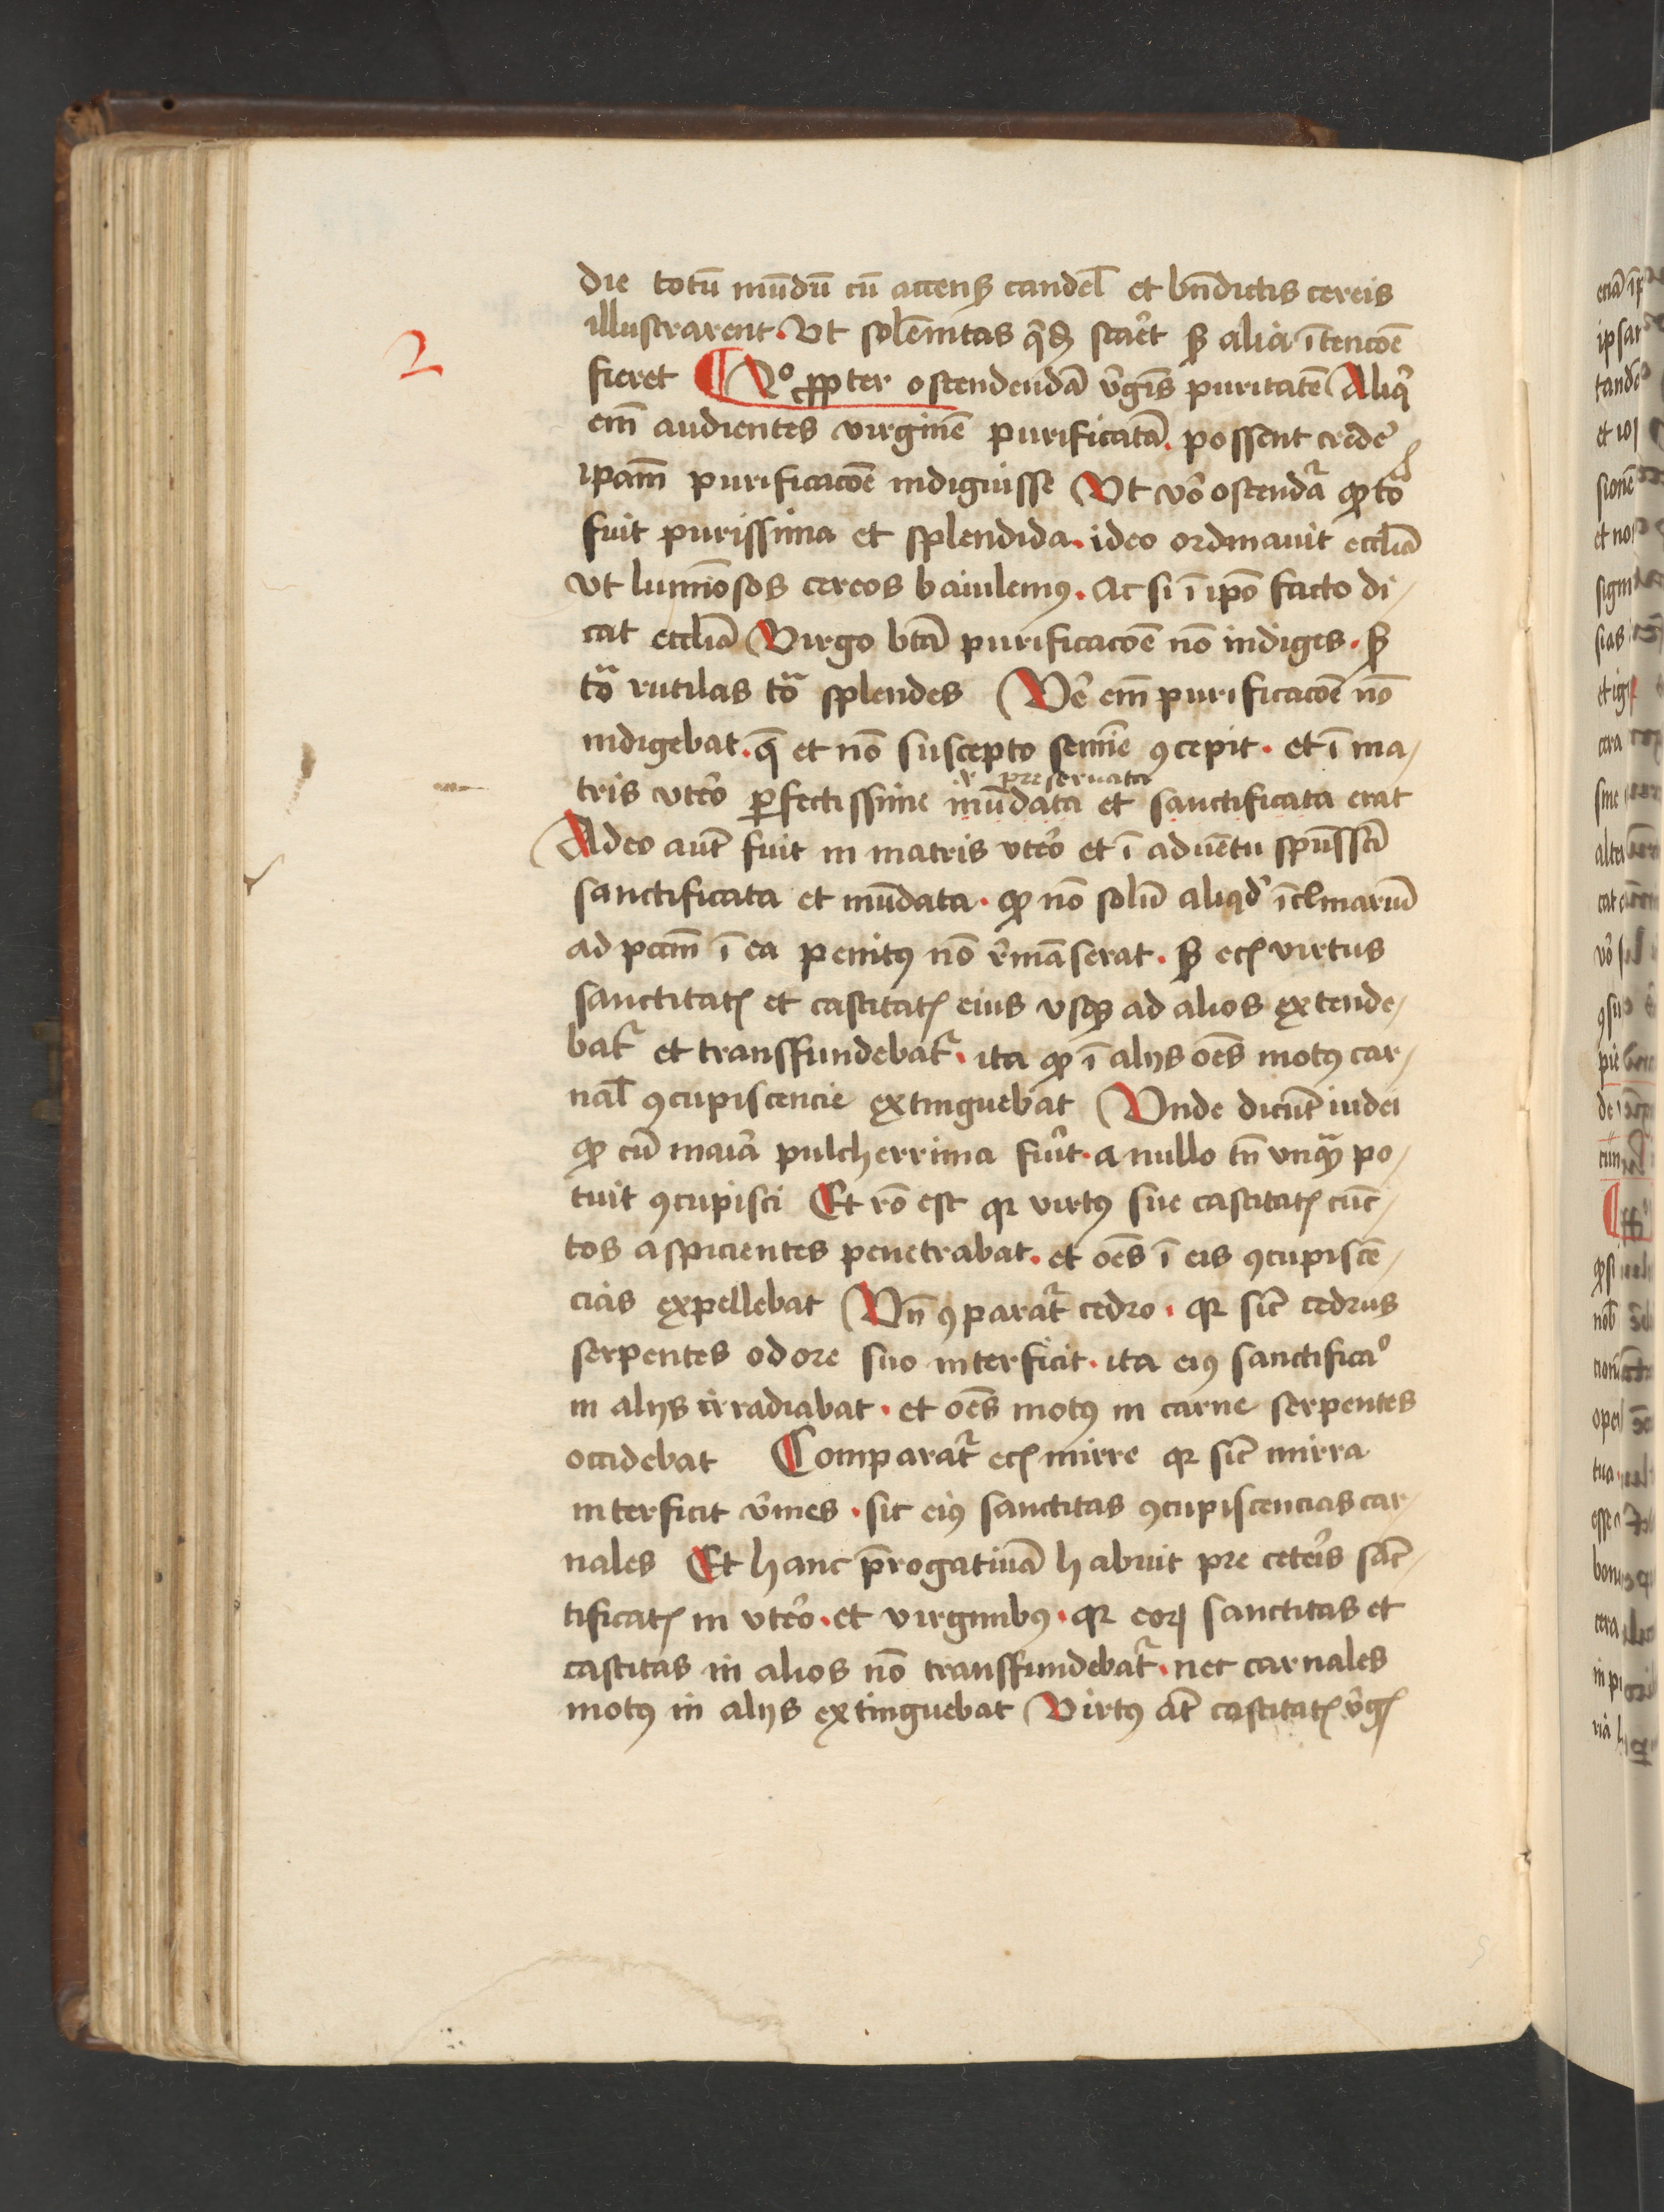 die totū mūdū cū accensꝫ candel̄ et bn̄dictis cereis
illustrarent · Vt solēnitas q̄dꝫ staret sꝫ alia ītencōe
2
fieret ¶ 2o ꝓpter ostendendā v̓gīs puritatē Aliq̓
em̄ audientes virginē purificatā · possent crede᷑
ip̄am purificacōe indiguisse Vt vo᷑ ostendat᷑ ꝙ tota
fuit purissima et splendida · ideo ordinauit eccl̄ia
vt luminosos cereos baiulemꝰ · ac si ī ip̄o facto di/
cat eccl̄ia Virgo bt̄a purificacōe nō indiges · sꝫ
tota rutilas tota splendes Ve᷑ em̄ purificacōe nō
indigebat · q̄ et nō suscepto semīe ꝯcepit · et ī ma/
preseruata
tris vte᷑o ꝑfectissime mūdata et sanctificata erat
Adeo aūt fuit in matris vte᷑o et ī aduētu spūssc̄i
sanctificata et mūdata · ꝙ nō solū aliqd̓ īcl̄inatiuū
ad pc̄cm̄ ī ea penitꝰ nō re᷑māserat · sꝫ ecꝭ virtus
sanctitatꝭ et castitatꝭ eius vsqꝫ ad alios extende/
bat᷑ et transfundebat᷑ · ita ꝙ ī alijs oēs motꝰ car/
nal̄ ꝯcupiscencie extinguebat Vnde dicūt iudei
ꝙ cū maria pulcherrima fuerit · a nullo tn̄ vnqua᷑ po/
tuit ꝯcupisci Et rō est qꝛ virtꝰ sue castitatꝭ cūc/
tos aspicientes penetrabat · et oēs ī eis ꝯcupiscē/
cias expellebat Vn̄ ꝯparat᷑ cedro · qꝛ sic̄ cedrus
serpentes odore suo interficit · ita eiꝰ sanctificao
in alijs irradiabat · et oēs motꝰ in carne serpentes
occidebat Comparat᷑ ecꝭ mirre qꝛ sic̄ mirra
interficit v̓mes · sic eiꝰ sanctitas ꝯcupiscencias car/
nales Et hanc p̄rogatiuā habuit pre cete᷑is sāc/
tificatꝭ in vte᷑o · et virginibꝰ · qꝛ eoꝝ sanctitas et
castitas in alios nō transfundebat᷑ · nec carnales
motꝰ in alijs extinguebat Virtꝰ āt castitatꝭ v̓gꝭ